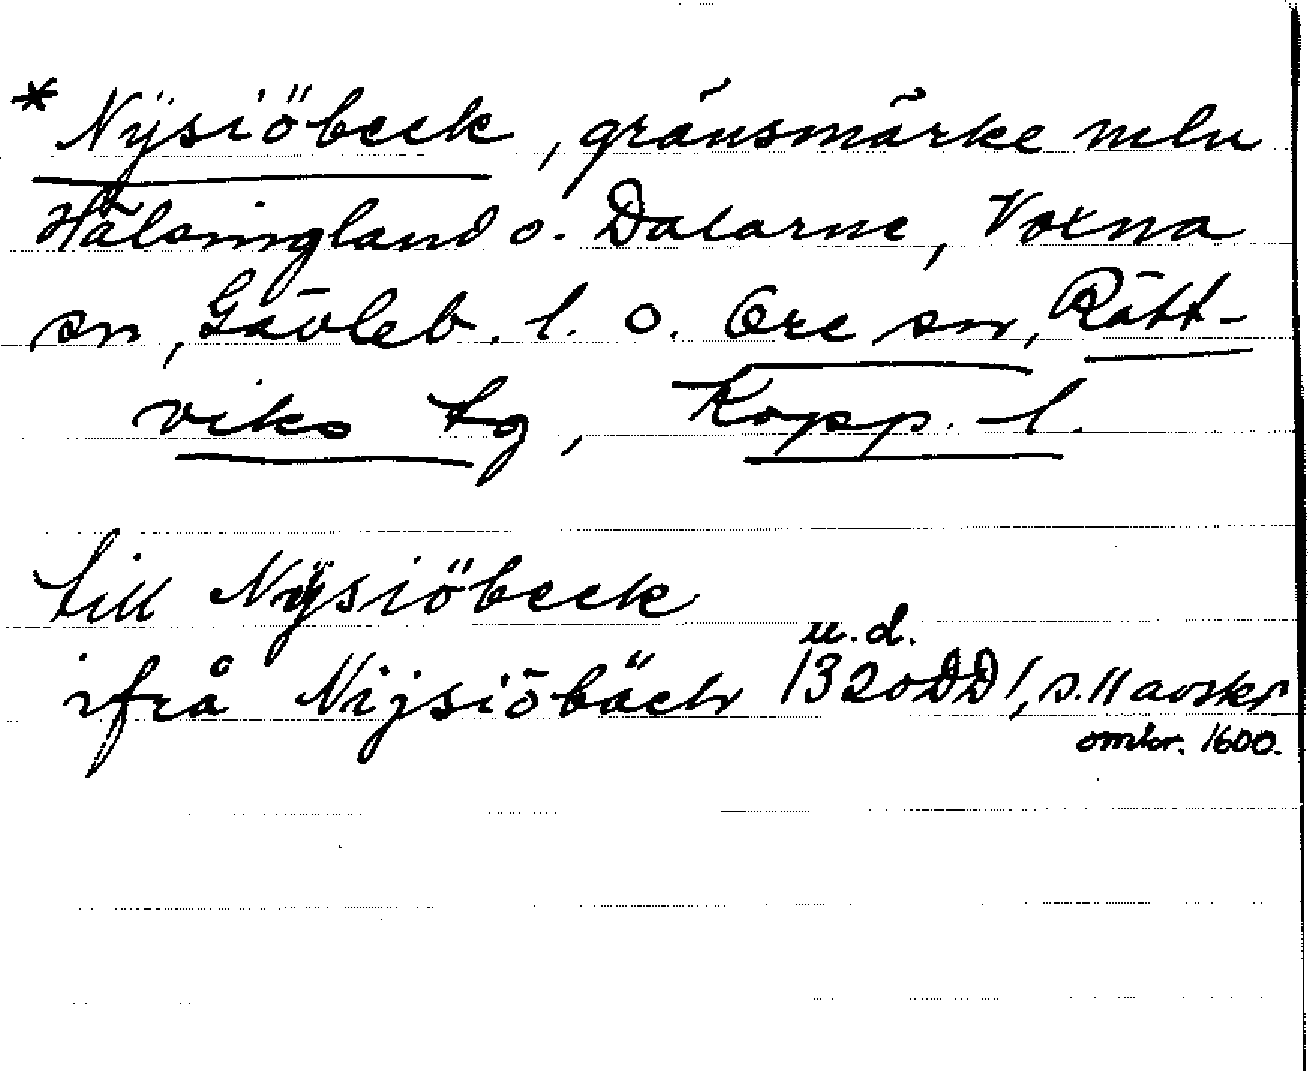 * Nÿsiöbeck, gränsmärke meln
Hälsingland o. Dalarne, Voxna
sn, Gävleb. l. o. Ore sn, Rätt-
viks tg, Kopp. l.
till Nÿsiöbeck
ifrå Nijsiöbäch u.d. 1320 DD 1, s. 11 avskr
omkr. 1600.